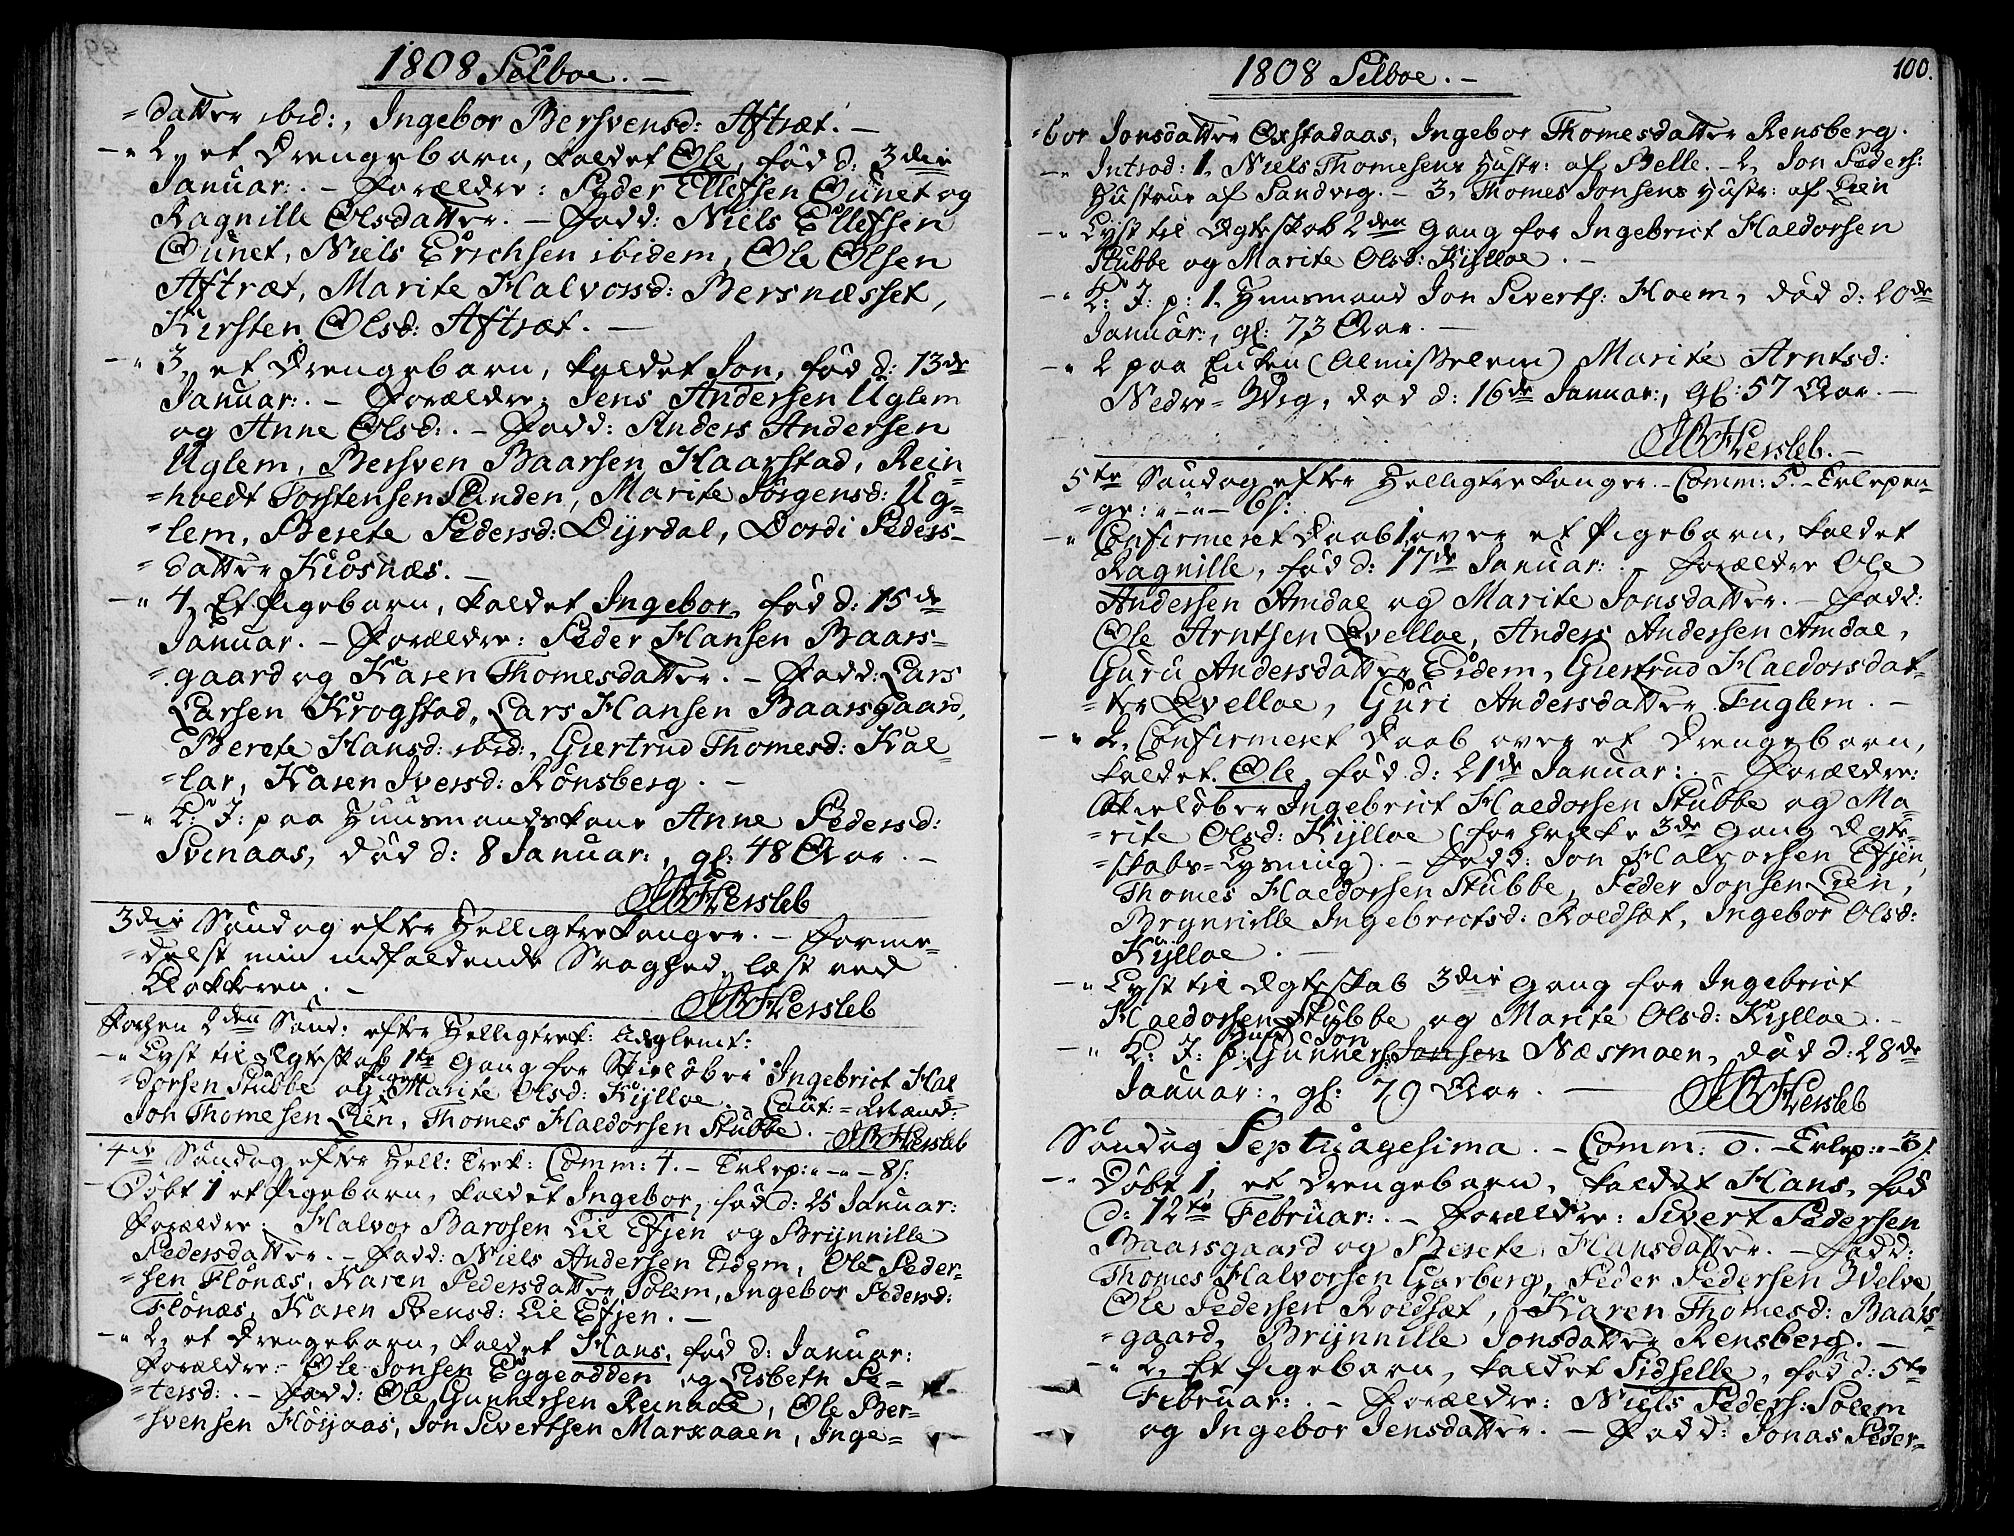 1808 Selboe. –
=datter ibid:, Ingebor Bersvensd: Aftræt. –
–" 2, et Drengebarn, kaldet Ole, fød d: 3die
Januar:. – Forældre: Peder Ellefsen Ounet og
Ragnille Olsdatter. – Fadd: Niels Ellefsen
Ounet, Niels Erichsen ibidem, Ole Olsen
Aftræt, Marite Halvorsd: Bersnæsset,
Kirsten Olsd: Aftræt. –
–" 3, et Drengebarn, kaldet Jon, fød d: 13de
Januar:. – Forældre: Jens Andersen Uglem
og Anne Olsd:. – Fadd: Anders Andersen
Uglem, Bersven Baarsen Haarstad, Rein=
=hoedt Torstensen Sanden, Marite Jørgensd: Ug=
=lem, Berete Pedersd: Dyrdal, Dordi Peders=
=datter Kiösnæs. –
–" 4, Et Pigebarn, kaldet Ingebor, fød d: 15de
Januar. – Forældre: Peder Hansen Baars=
=gaard og Karen Thomesdatter. – Fadd: Lars
Larsen Krogstad, Lars Hansen Baarsgaard,
Berete Hansd: ibid:, Giertrud Thomesd: Kal=
=lar, Karen Iversd: Rönsberg. –
–" K: J: paa Huusmandskone Anne Pedersd:
Svinaas, død d: 8 Januar:, gl: 48 Aar. –
Hersleb
3die Søndag efter Helligtrekonger. – Forme=
=delst min indfaldende Svaghed, læst ved
Klokkeren. –
Hersleb
Forhen 2den Sønd: efter Helligtrek: udglemt:
–" Lyst til Ægteskab 1te Gang for Skieløber Ingebrict Hal=
=dorsen Stubbe og Pigen Marite Olsd: Kÿlloe. – Caut:
Jon Thomesen Lien, Thomes Haldorsen Stubbe. – Hersleb
4de Søndag efter Hell: Trek: Comm: 4. – Erlep: – " – 8 s:
– Døbt 1 et Pigebarn, kaldet Ingebor, fød d: 25 Januar:
Forældre: Halvor Barosen Lil Efjen og Brÿnnille
Pedersdatter. – Fadd: Niels Andersen Eidem, Ole Peder=
=sen Flönæs, Karen Pedersdatter Solem, Ingebor Pedersd:
Flönæs, Karen Svensd: Lil Efjen. –
–" 2, et Drengebarn, kaldet Hans, fød d: Januar:
Forældre: – Ole Jonsen Eggeodden og Lisbeth Pe=
=tersd:. – Fadd: Ole Gunnersen Reinaae, Ole Ber=
=svensen Höyaas, Jon Sivertsen Marxaaen, Inge=
1808 Selboe. –
100.
=bor Jonsdatter Oxstadaas, Ingebor Thomesdatter Rensberg.
–" Introd: 1, Niels Thomesens Hustr: af Belle. – 2, Jon Peders:
Hustrue af Sandvig. – 3, Thomes Jonsens Hustr: af Lien
–" Lyst til Ægteskab 2den Gang for Ingebrict Haldorsen
Stubbe og Marite Olsd: Kÿlloe. –
–" K: J: p: 1, Huusmand Jon Siverts: Hoem, død d: 20de
Januar:, gl: 73 Aar. –
–" 2 paa Enken (Almisselem) Marite Arntsd:
Nedre=Wig, død d: 16de Januar:, gl: 57 Aar. –
Hersleb. –
5te Søndag efter Helligtrekonger. – Comm: 5. – Erlepen=
=ge: – " – 6 s:
–" Confirmeret Daab 1, over et Pigebarn, kaldet
Ragnille, fød d: 17de Januar:. – Forældre Ole
Andersen Amdal og Marite Jonsdatter. – Fadd:
Ole Arntsen Evelloe, Anders Andersen Amdal,
Guru Andersdatter Eidem, Giertrud Haldorsdat=
=ter Evelloe, Guri Andersdatter Fuglem. –
–" 2, Confirmeret Daab over et Drengebarn,
kaldet Ole, fød d: 21de Januar:. – Forældre:
Skieløber Ingebrict Haldorsen Stubbe og Ma=
=rite Olsd: Kÿlloe (for hvilke 3de Gang Ægte=
=skabs=Lysning). – Fadd: Jon Halvorsen Efjen,
Thomes Haldorsen Stubbe, Peder Jonsen Lien,
Brynnille Ingebrictsd: Roldsæt, Ingebor Olsd:
Kÿlloe. –
–" Lyst til Ægteskab 3die Gang for Ingebrict
Haldorsen Stubbe og Marite Olsd: Kÿlloe. –
–" K: J: p: Jon Gunners: Jonsen Næsmoen, død d: 28de
Januar:, gl: 79 Aar. – Hersleb
Søndag Septuagesima. – Comm: 0. – Erlep: " – 3 s:
–" Døbt 1, et Drengebarn, kaldet Hans, fød
d: 12te Februar:. – Forældre: Sivert Pedersen
Baarsgaard og Berete Hansdatter. – Fadd:
Thomes Halvorsen Garberg, Peder Pedersen Welve,
Ole Pedersen Roldsæt, Karen Thomesd: Baars=
=gaard, Brÿnnille Jonsdatter Rensberg. –
–" 2, Et Pigebarn, kaldet Sidselle, fød d: 5te
Februar:. – Forældre: Niels Peders: Solem
og Ingebor Jensdatter. – Fadd: Jonas Peder=